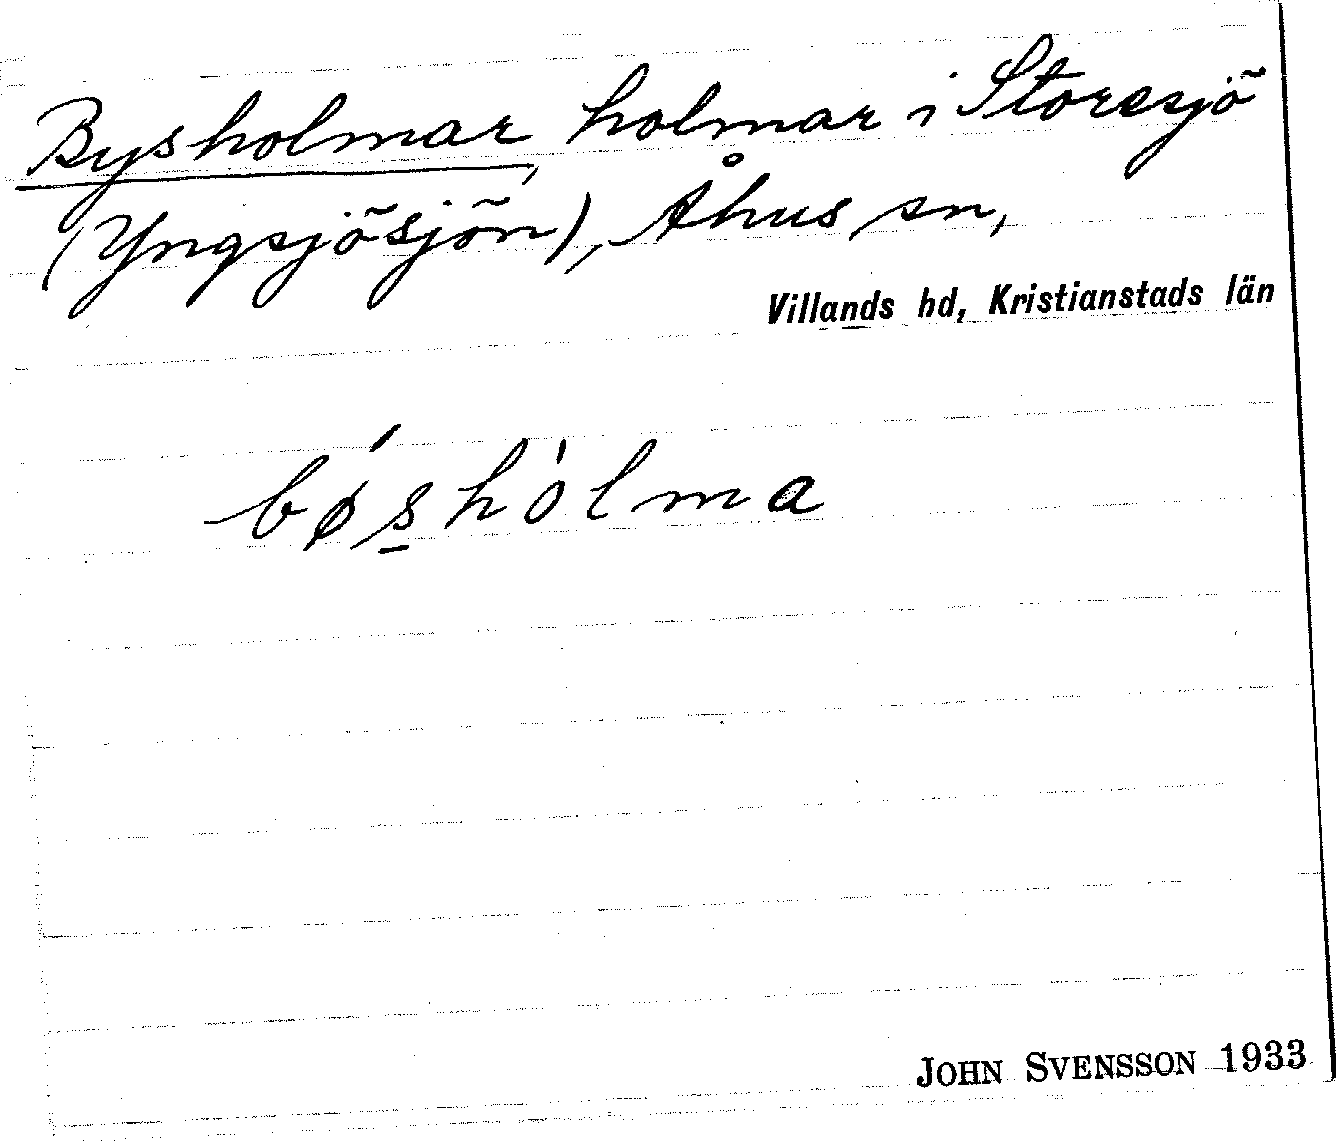 Bysholmar, holmar i Storesjö
(Yngsjösjön), Åhus sn,
Villands hd, Kristianstads län
bø´s̱hòlma
JOHN SVENSSON 1933